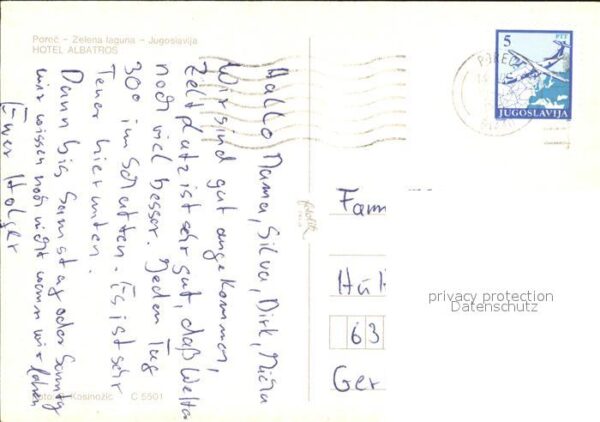 Poreč - Zelena laguna - Jugoslavija
HOTEL ALBATROS
Hallo Mama, Silva, Dirk,
Wir sind gut angekommen,
Zeltplatz ist sehr gut, daß Wetter
noch viel besser. Jeden Tag
30° im Schatten. Es ist sehr
Teuer hier unten.
Dann bis Samstag oder Sonntag
wir wissen noch nicht wann wir fahren
Euer Holger
Kosinožić C 5501
5
PTT
JUGOSLAVIJA
POREČ
Fam
63
Ger
privacy protection
Datenschutz